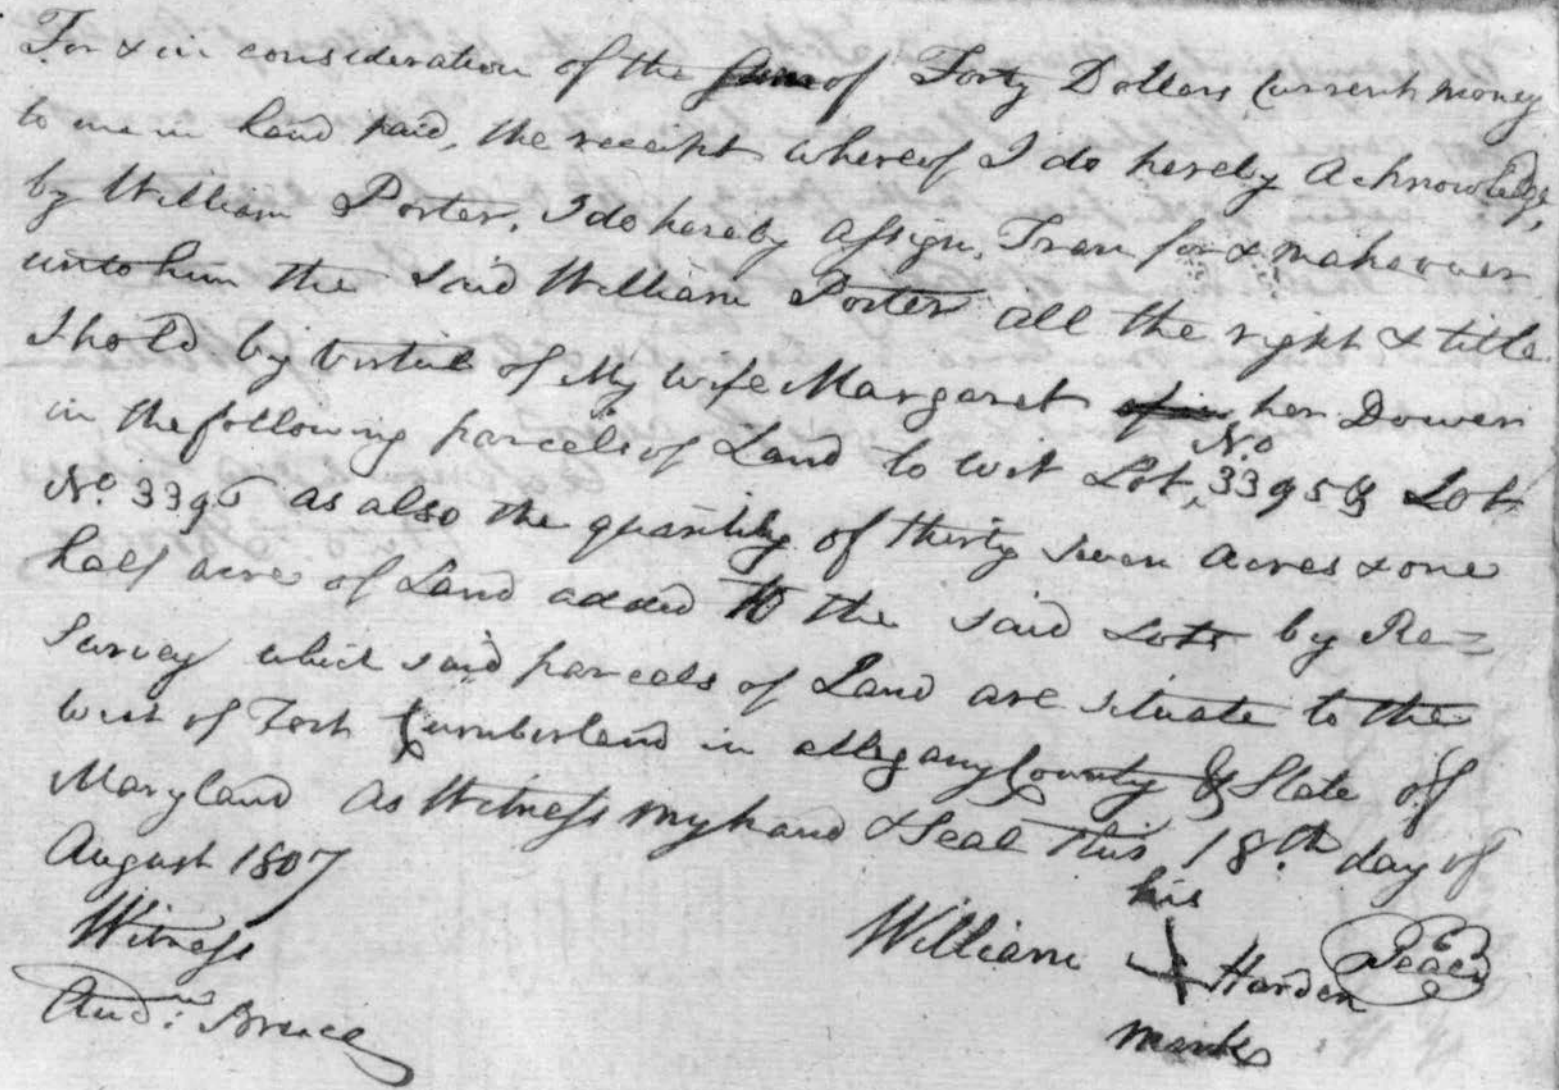 For & in consideration of the sum of Forty Dollars Current money
to me in hand paid, the receipt whereof I do hereby Acknowledge,
by William Porter, I do hereby assign, Transfor & make over
unto him the said William Porter all the right & title
I hold by virtue of My wife Margaret her Dower
in the following parcels of Land to wit Lot No 3395 & Lot
No. 3396 as also the quantity of thirty seven acres & one
half acre of Land added to the said Lots by Re=
survey which said parcels of Land are situate to the
West of Fort Cumberland in allegany County & State of
Maryland As Witness my hand & Seal this 18.th day of
August 1807
his
Witness
William Harden Seal
Andw. Bruce
mark